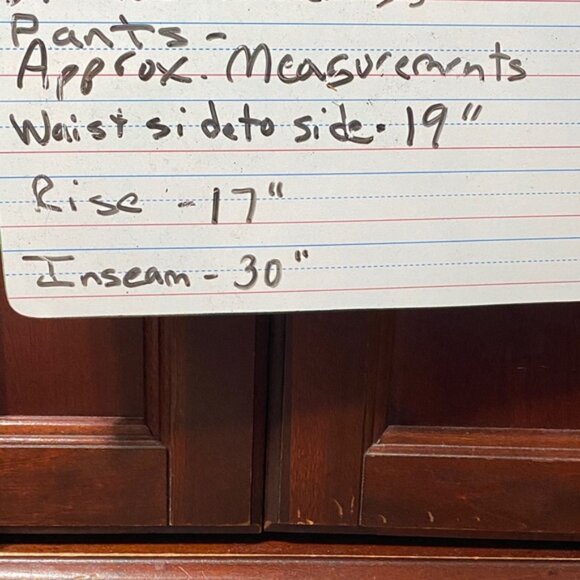 Pants -
Approx. Measurements
Waist side to side. 19"
Rise - 17"
Inseam - 30"